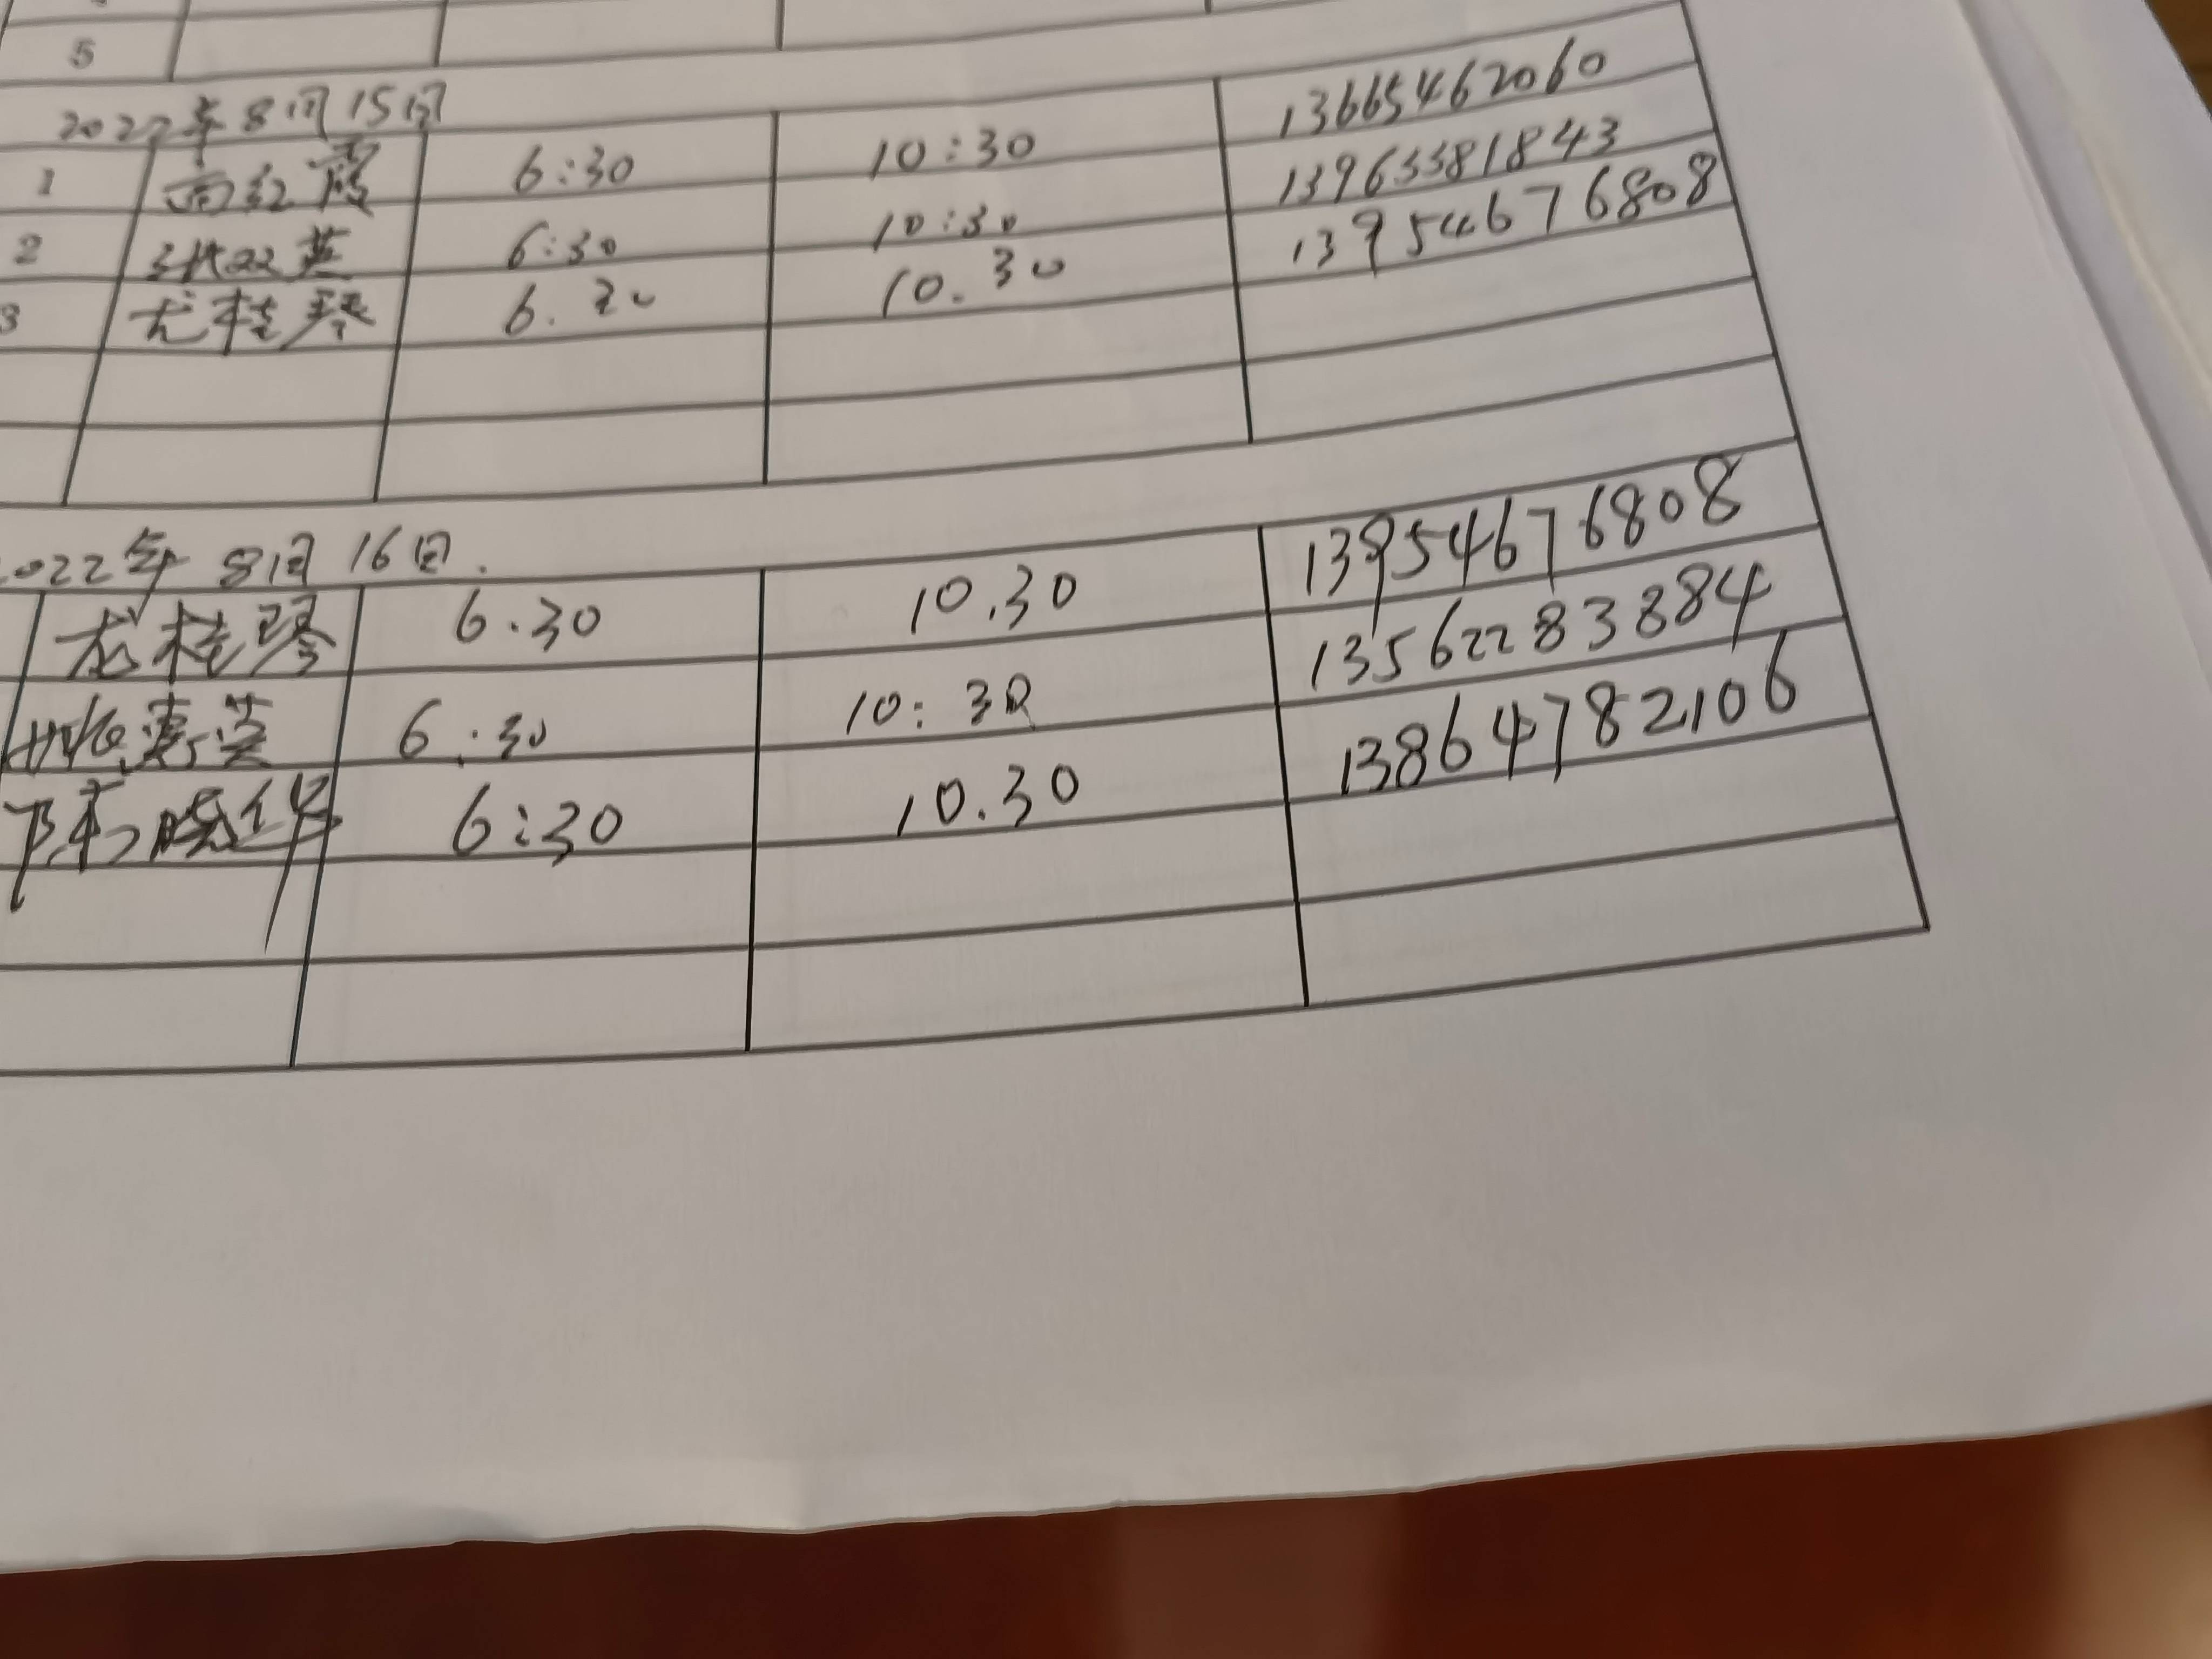 5
2022年8月15日
1 高红霞 6:30 10:30 13665462060
2 英 6:30 10:30 13963381843
3 尤桂琴 6.30 10.30 13954676808
2022年8月16日.
尤桂琴 6.30 10.30 13954676808
6:30 10:30 13562283884
陈晓华 6:30 10.30 13864782106